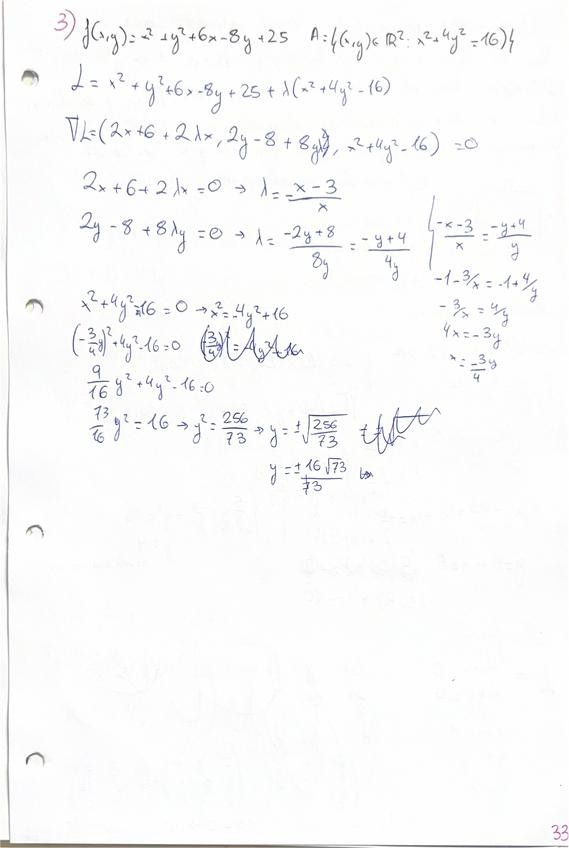 3) f(x,y)=x²+y²+6x-8y+25 A={(x,y)∈ℝ²: x²+4y²=16)}
L= x²+y²+6x-8y+25+λ(x²+4y²-16)
∇L=(2x+6+2λx, 2y-8+8yλ, x²+4y²-16)=0
2x+6+2λx=0 → λ=(-x-3)/x
2y-8+8λy=0 → λ=(-2y+8)/8y=(-y+4)/4y
{(-x-3)/x=(-y+4)/y
-1-3/x=-1+4/y
-3/x=4/y
4x=-3y
x=-3y/4
x²+4y²-16=0 → x²=-4y²+16
(-3/4 y)²+4y²-16=0
9/16 y²+4y²-16=0
73/16 y²=16 → y²=256/73 → y=±√(256/73)
y=±16√73/73
33